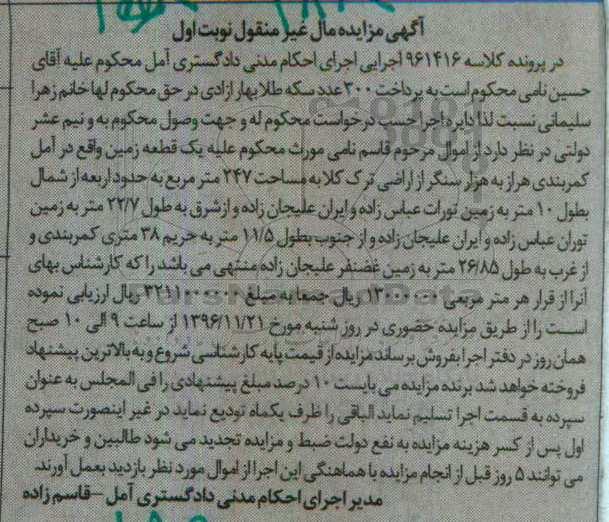 آگهی مزایده مال غیر منقول نوبت اول
در پرونده کلاسه ۹۶۱۴۱۶ اجرایی اجرای احکام مدنی دادگستری آمل محکوم علیه آقای
حسین نامی محکوم است به پرداخت ۳۰۰ عدد سکه طلا بهار ازادی در حق محکوم لها خانم زهرا
سلیمانی نسبت لذا دایره اجرا حسب درخواست محکوم له و جهت وصول محکوم به و نیم عشر
دولتی در نظر دارد از اموال مرحوم قاسم نامی مورث محکوم علیه یک قطعه زمین واقع در آمل
کمربندی هراز به هزار سنگر از اراضی ترک کلا به مساحت ۲۴۷ متر مربع به حدود اربعه از شمال
بطول ۱۰ متر به زمین تورات عباس زاده و ایران علیجان زاده و ازشرق به طول ۲۲/۷ متر به زمین
توران عباس زاده و ایران علیجان زاده و از جنوب بطول ۱۱/۵ متر به حریم ۳۸ متری کمربندی و
از غرب به طول ۲۶/۸۵ متر به زمین غضنفر علیجان زاده منتهی می باشد را که کارشناس بهای
آنرا از قرار هر متر مربعی ۱۳۰۰۰۰۰۰ ریال جمعا به مبلغ ۳۲۱۱۰۰۰۰۰۰ ریال ارزیابی نموده
است را از طریق مزایده حضوری در روز شنبه مورخ ۱۳۹۶/۱۱/۲۱ از ساعت ۹ الی ۱۰ صبح
همان روز در دفتر اجرا بفروش برساند مزایده از قیمت پایه کارشناسی شروع و به بالاترین پیشنهاد
فروخته خواهد شد برنده مزایده می بایست ۱۰ درصد مبلغ پیشنهادی را فی المجلس به عنوان
سپرده به قسمت اجرا تسلیم نماید الباقی را ظرف یکماه تودیع نماید در غیر اینصورت سپرده
اول پس از کسر هزینه مزایده به نفع دولت ضبط و مزایده تجدید می شود طالبین و خریداران
می توانند ۵ روز قبل از انجام مزایده با هماهنگی این اجرا از اموال مورد نظر بازدید بعمل آورند.
مدیر اجرای احکام مدنی دادگستری آمل – قاسم زاده
ParsNamadData